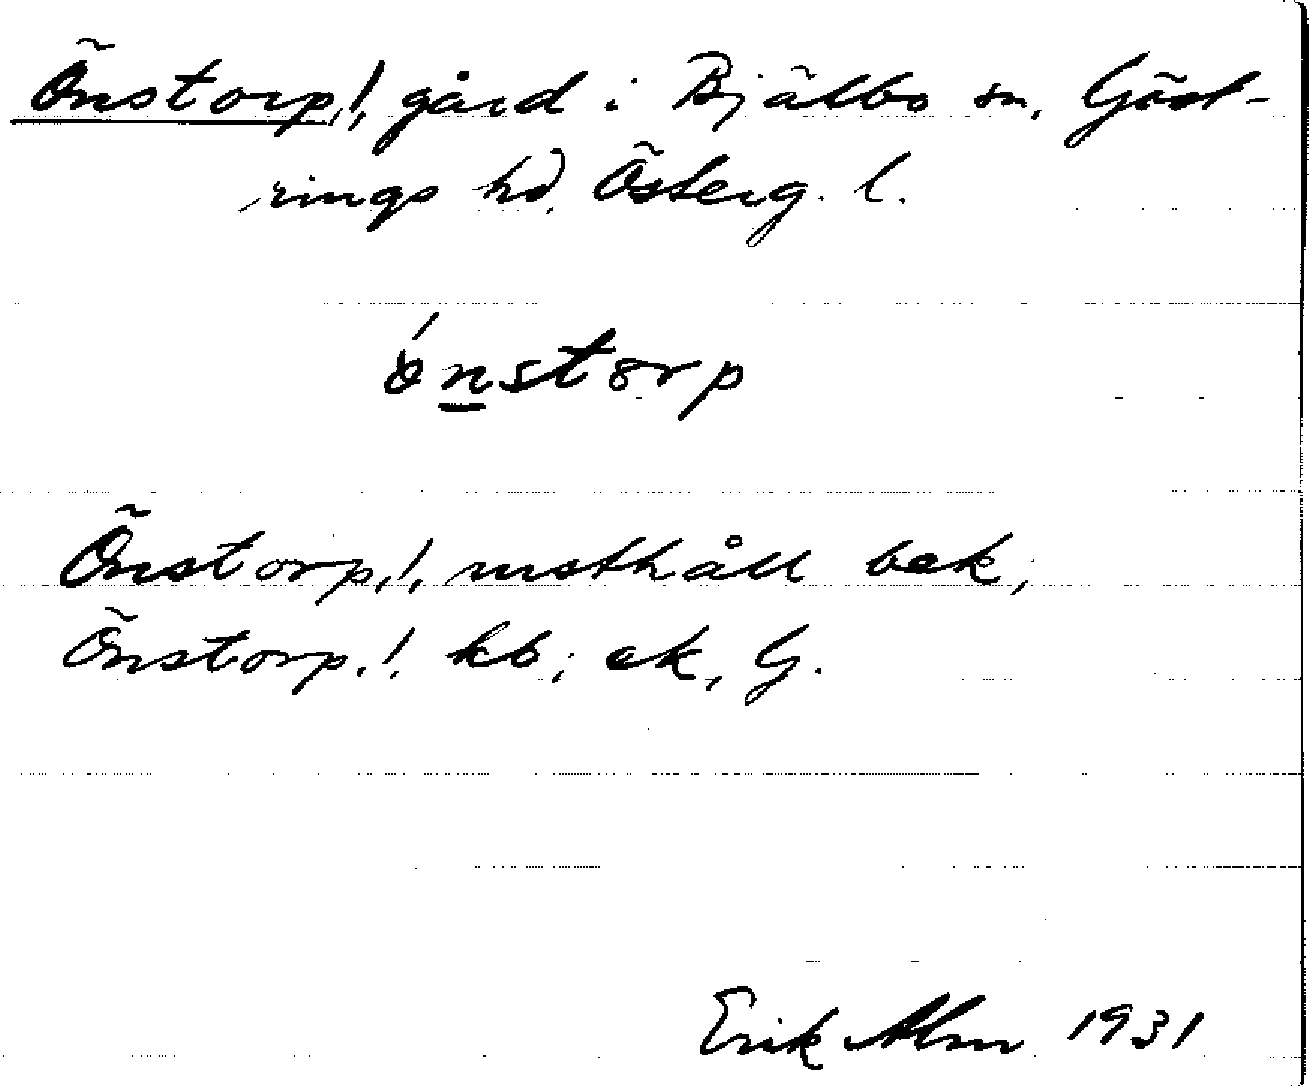 Önstorp,!, gård i Bjälbo sn, Göst-
rings hd, Österg. l.
önstorp
Önstorp,!, rusthåll bek;
Önstorp,!, kb; ek, G.
Erik Alm 1931